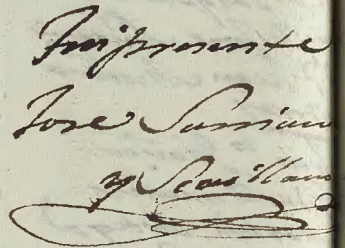 Fui presente
Jose Surriano
y Sevillano